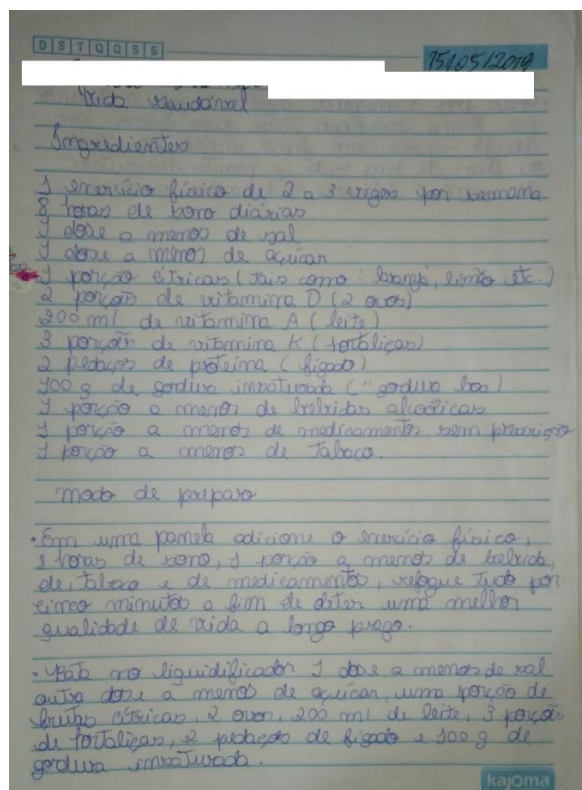 D S T Q Q S S
15/05/2019
Vida saudável
Ingredientes
1 exercício físico de 2 a 3 vezes por semana
8 horas de sono diárias
1 dose a menos de sal
1 dose a menos de açúcar
1 porção cítricas (tais como: laranja, limão etc.)
2 porções de vitamina D (2 ovos)
200 ml de vitamina A (leite)
3 porções de vitamina K (hortaliças)
2 pedaços de proteína (fígado)
100 g de gordura insaturada ("gordura boa)
1 porção a menos de bebidas alcoólicas
1 porção a menos de medicamentos sem prescrição
1 porção a menos de tabaco.
modo de preparo
• Em uma panela adicione o exercício físico,
8 horas de sono, 1 porção a menos de bebida,
de tabaco e de medicamentos, refogue tudo por
cinco minutos a fim de obter uma melhor
qualidade de vida a longo prazo.
• Bata no liquidificador 1 dose a menos de sal
outra dose a menos de açúcar, uma porção de
frutas cítricas, 2 ovos, 200 ml de leite, 3 porções
de hortaliças, 2 pedaços de fígado e 100 g de
gordura insaturada.
kajoma